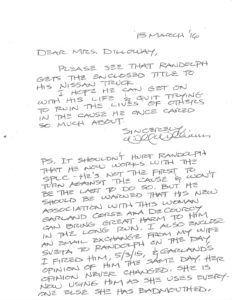 15 MARCH '16
DEAR MRS. DILLOWAY,
PLEASE SEE THAT RANDOLPH
GETS THE ENCLOSED TITLE TO
HIS NISSAN TRUCK.
I HOPE HE CAN GET ON
WITH HIS LIFE & QUIT TRYING
TO RUIN THE LIVES OF OTHERS
IN THE CAUSE HE ONCE CARED
SO MUCH ABOUT.
SINCERELY,
PS. IT SHOULDN'T HURT RANDOLPH
THAT HE NOW WORKS WITH THE
SPLC - HE'S NOT THE FIRST TO
TURN AGAINST THE CAUSE & WON'T
BE THE LAST TO DO SO. BUT HE
SHOULD BE WARNED THAT HIS NEW
ASSOCIATION WITH THIS WOMAN
GARLAND DECOURCY
CAN BRING GREAT HARM TO HIM
IN THE LONG RUN. I ALSO ENCLOSE
AN EMAIL EXCHANGE FROM MY WIFE
SVETA TO RANDOLPH ON THE DAY
I FIRED HIM, 5/5/15, & GARLAND'S
OPINION OF HIM THE SAME DAY. HER
OPINION NEVER CHANGED. SHE IS
NOW USING HIM AS SHE USES EVERY-
ONE ELSE SHE HAS BADMOUTHED.